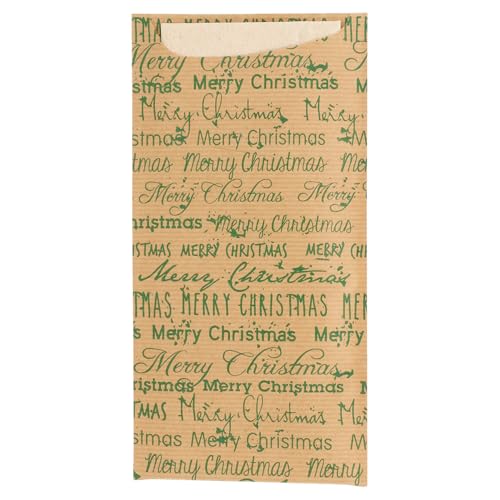 Merry Christmas
mas Merry Christmas Merr
Merry Christmas
hristmas Merry Christmas
Merry Christmas Merry
Merry Christmas
hristmas Merry Christmas
MAS MERRY CHRISTMAS MERRY
Merry Christmas
TMAS MERRY CHRISTMAS MER
Merry Christmas Merry
Merry Christmas
hristmas Merry Christmas
Merry Christmas
stmas Merry Christmas Me
Merry Christmas